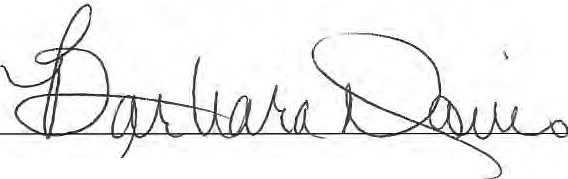 Barbara Davis